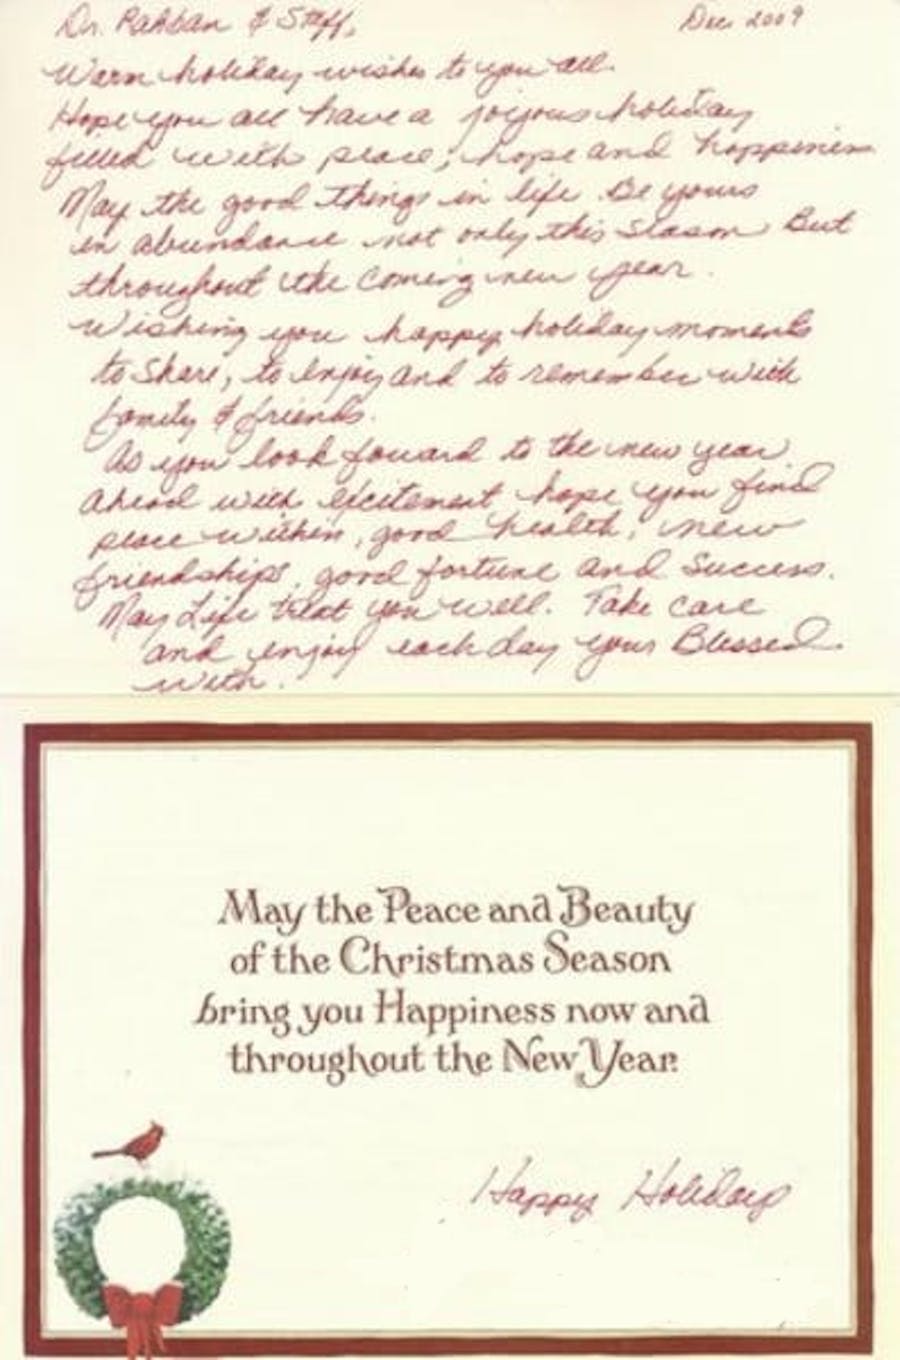 Dr. Rahban & Staff,
Dec 2009
Warm holiday wishes to you all.
Hope you all have a joyous holiday
filled with peace, hope and happiness
May the good things in life Be yours
in abundance not only this season But
throughout the coming new year.
Wishing you happy holiday moments
to share, to enjoy and to remember with
family & friends.
As you look foward to the new year
Ahead with excitement hope you find
peace within, good health, new
friendships, good fortune and success.
May Life treat you well. Take care
and enjoy each day your Blessed
with.
May the Peace and Beauty
of the Christmas Season
bring you Happiness now and
throughout the New Year.
Happy Holidays